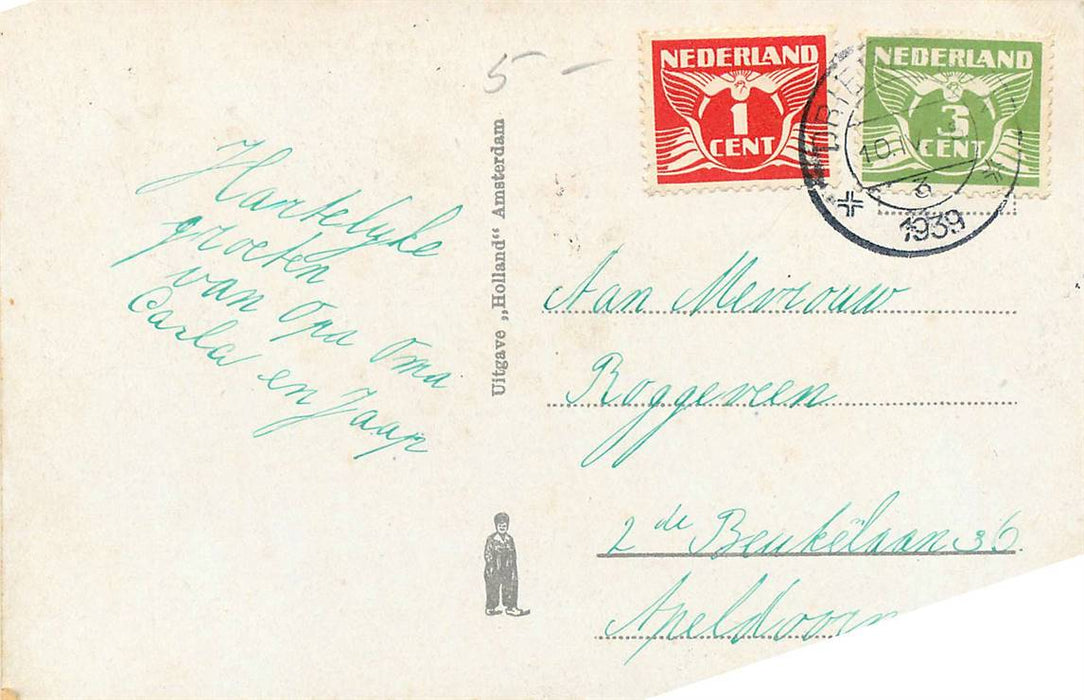 5 –
Hartelyke
groeten
van Opa Oma
Carla en Jaap
Uitgave „Holland“ Amsterdam
NEDERLAND
1
CENT
NEDERLAND
3
CENT
1939
Aan Mevrouw
Roggeveen
2de Beukëlaan 36
Apeldoorn